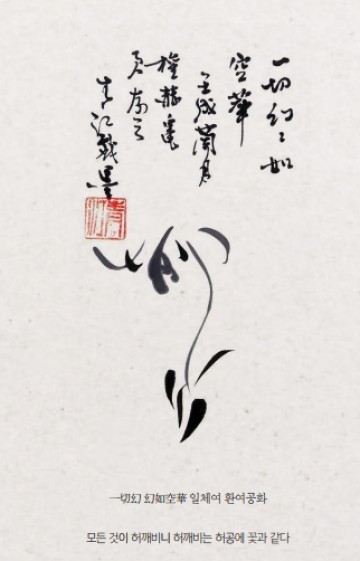 一切幻〻如
空華
壬戌蘭月
青江戱墨
一切幻 幻如空華 일체여 환여공화
모든 것이 허깨비니 허깨비는 허공에 꽃과 같다